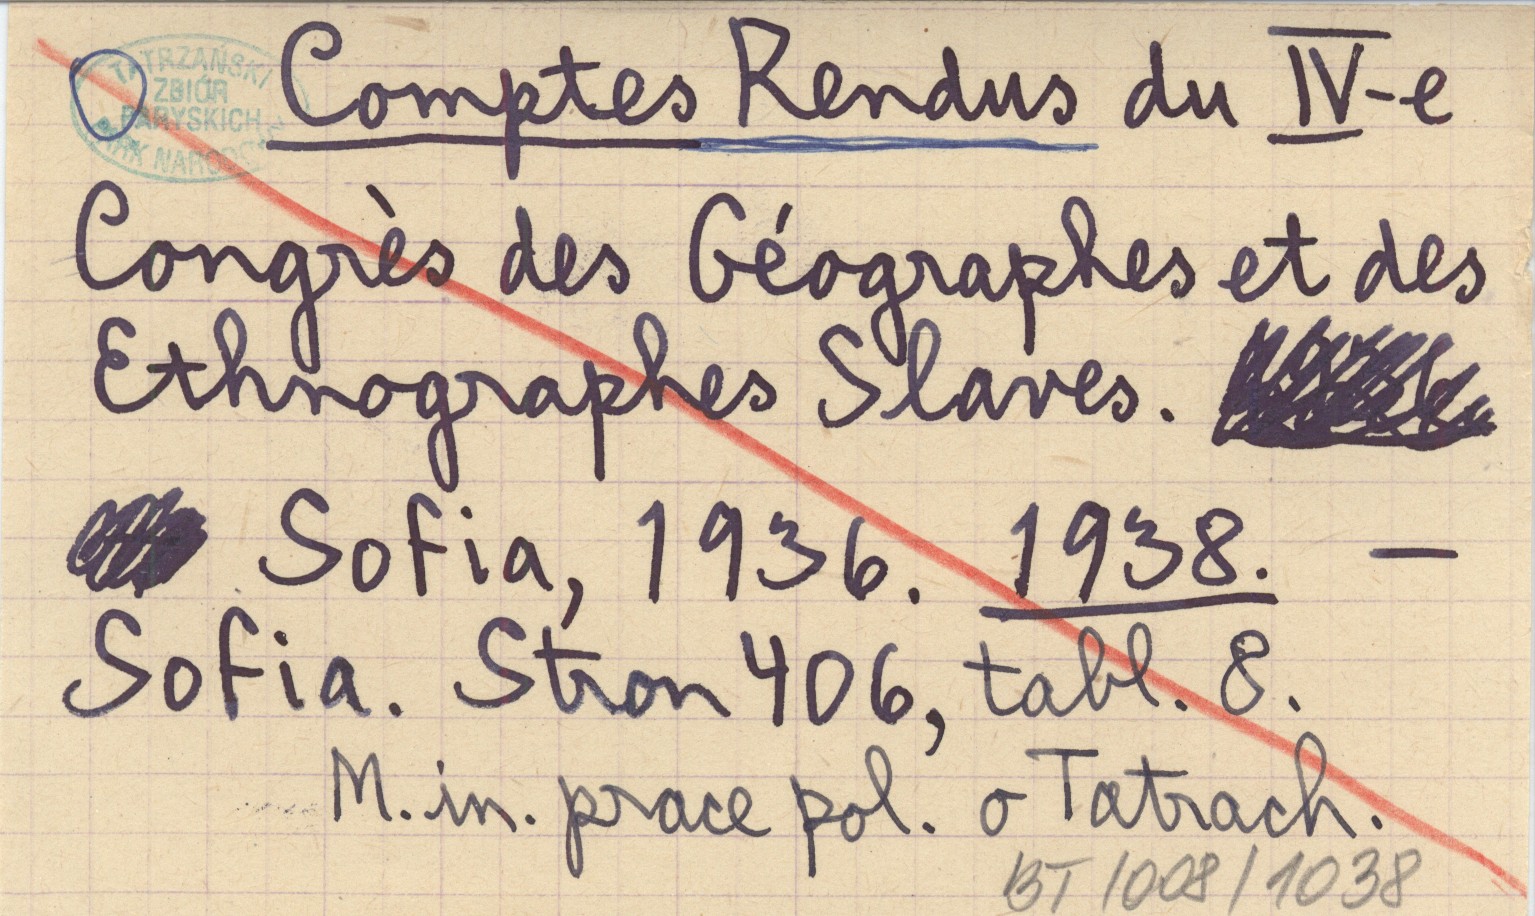 TATRZAŃSKI
ZBIÓR
PARYSKICH
PARK NARODO
Comptes Rendus du IV-e
Congrès des Géographes et des
Ethnographes Slaves.
Sofia, 1936. 1938. —
Sofia. Stron 406, tabl. 8.
M. in. prace pol. o Tatrach.
BT/008/1038